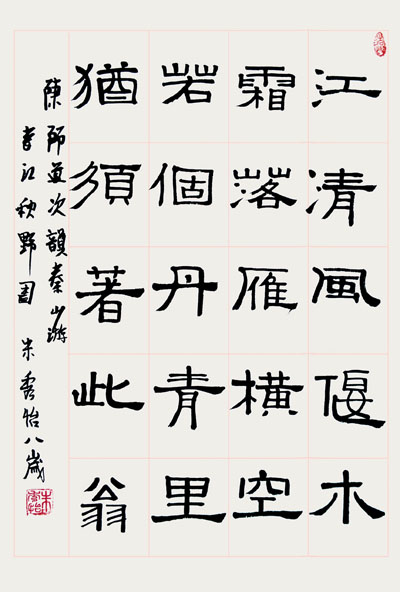 江清風偃木
霜落雁橫空
若個丹青里
猶須著此翁
陳師道次韻秦少游
春江秋野圖 朱秀怡八歲